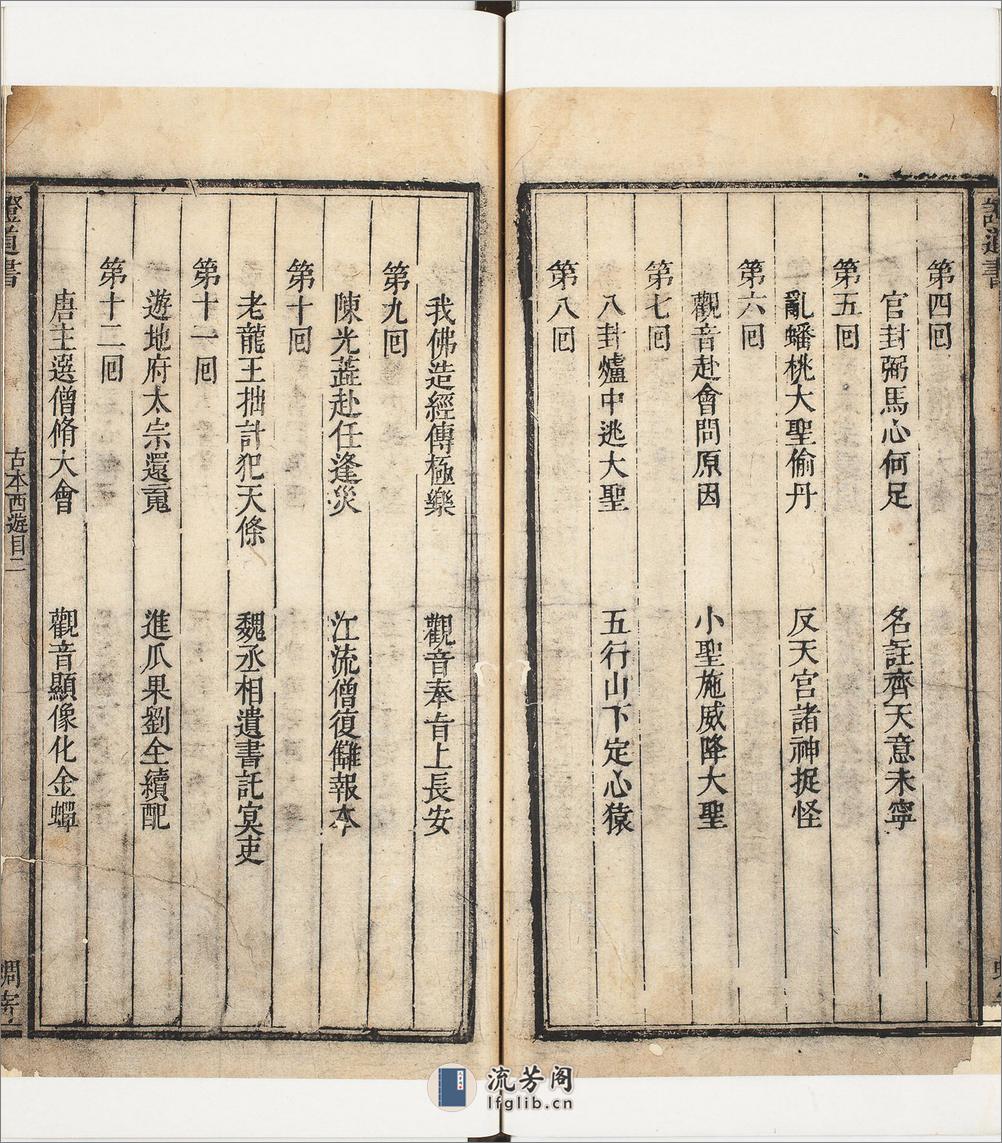 第四回
官封弼馬心何足　名註齊天意未寧
第五回
亂蟠桃大聖偷丹　反天宮諸神捉怪
第六回
觀音赴會問原因　小聖施威降大聖
第七回
八卦爐中逃大聖　五行山下定心猿
第八回
我佛造經傳極樂　觀音奉旨上長安
第九回
陳光蕋赴任逢災　江流僧復讎報本
第十回
老龍王拙計犯天條　魏丞相遺書託冥吏
第十一回
遊地府太宗還䰟　進瓜果劉全續配
第十二回
唐主選僧脩大會　觀音顯像化金蟬
證道書
古本西遊目二
蜩寄
流芳阁
lfglib.cn